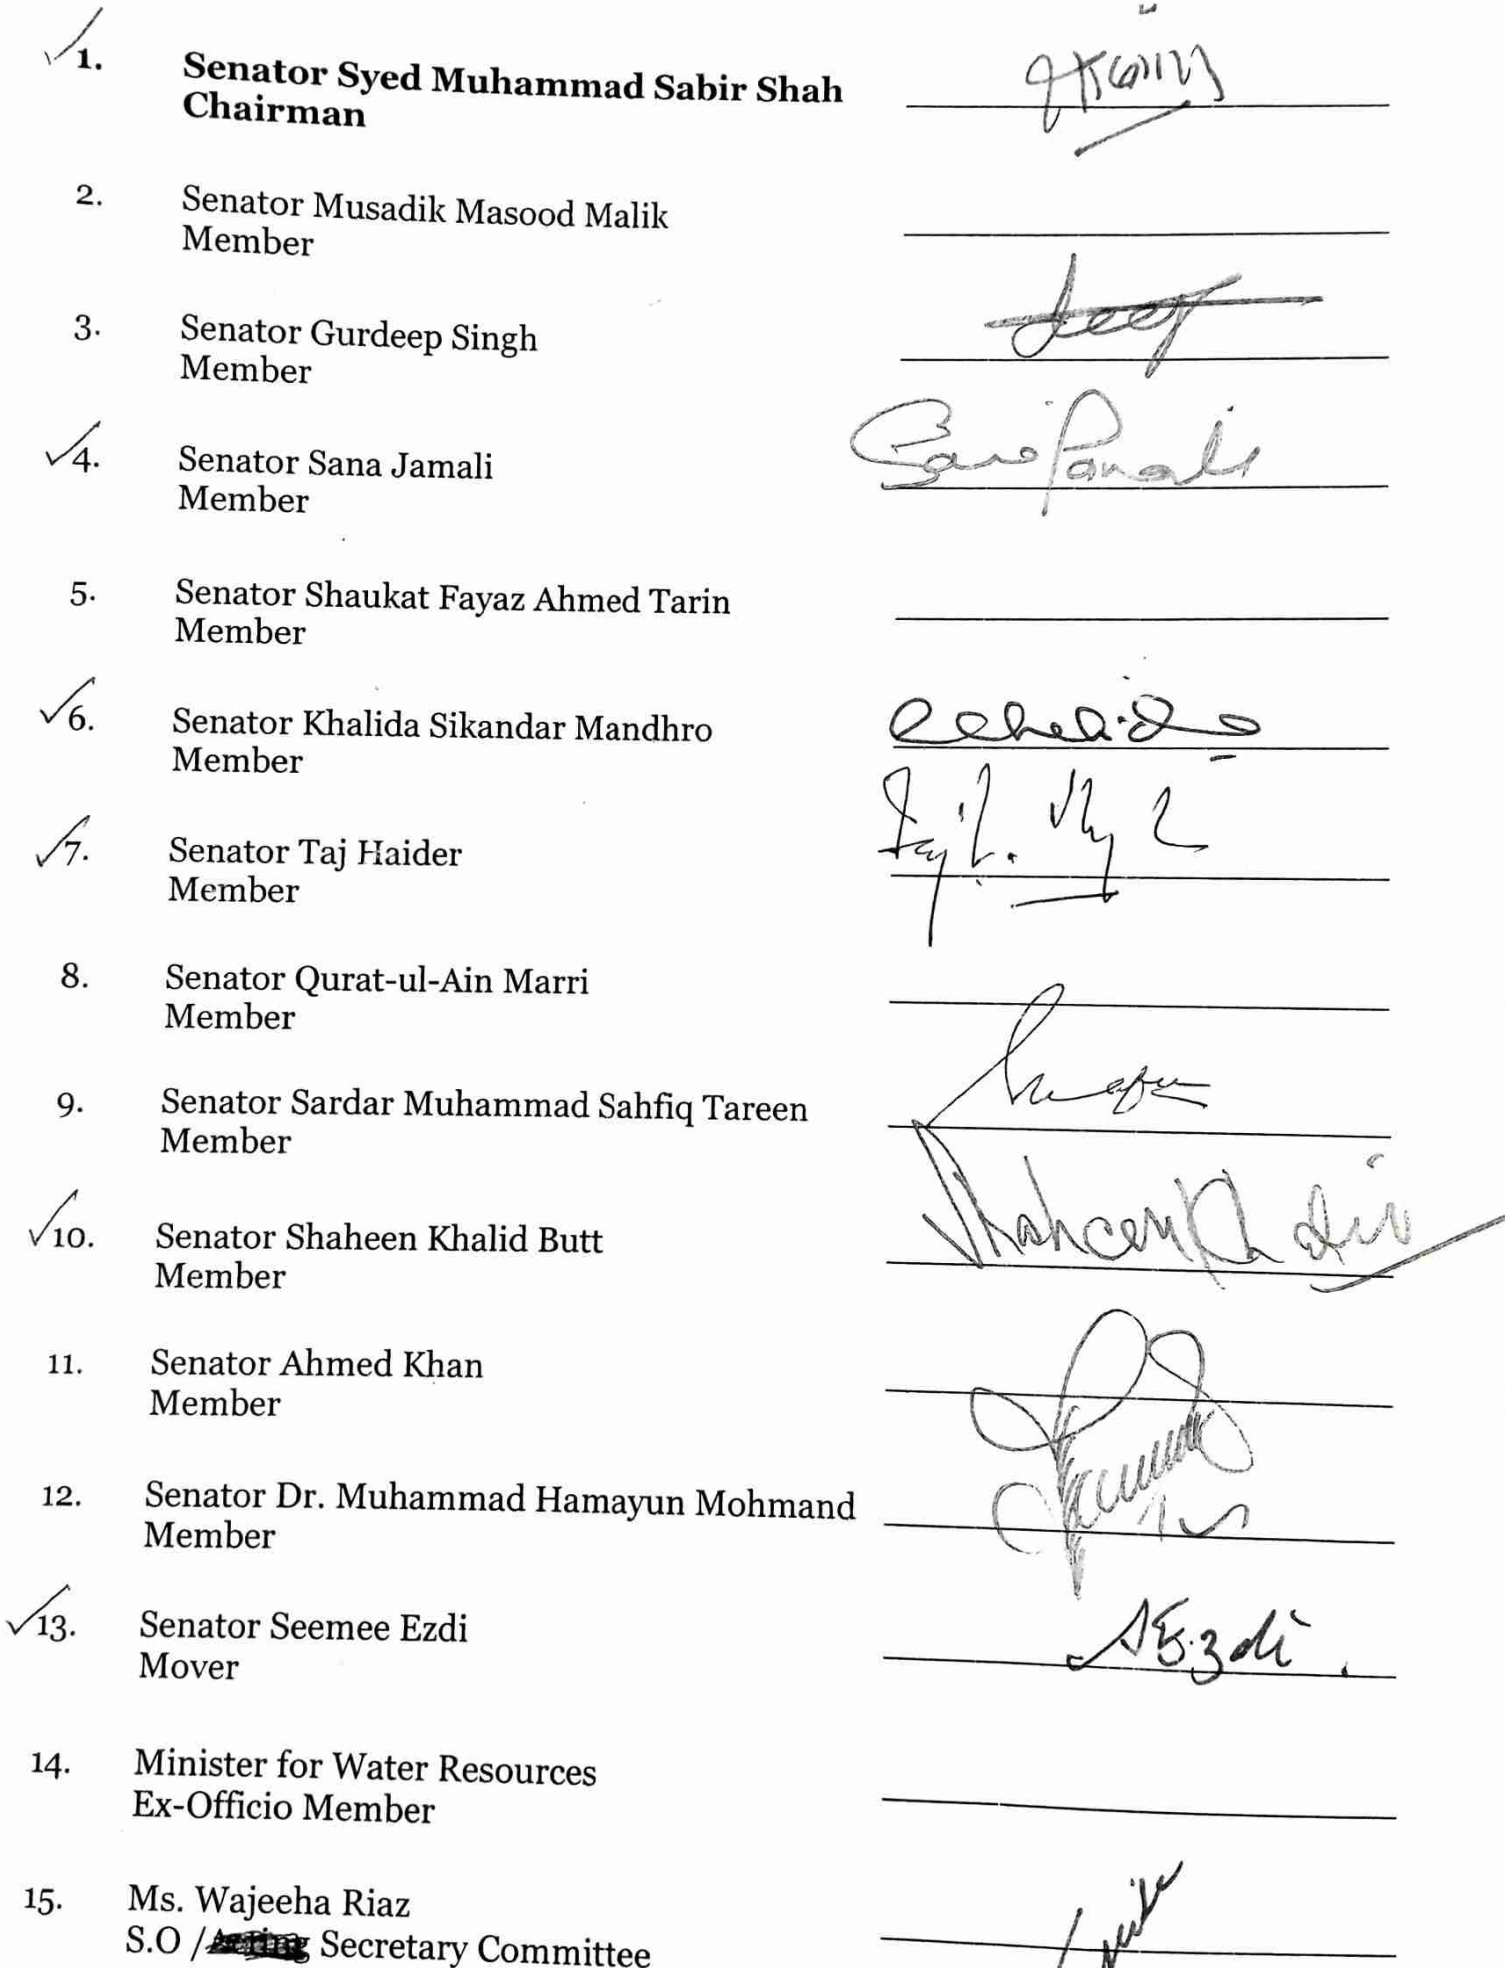 1. Senator Syed Muhammad Sabir Shah
Chairman
2. Senator Musadik Masood Malik
Member
3. Senator Gurdeep Singh
Member
4. Senator Sana Jamali Sana Jamali
Member
5. Senator Shaukat Fayaz Ahmed Tarin
Member
6. Senator Khalida Sikandar Mandhro
Member
7. Senator Taj Haider
Member
8. Senator Qurat-ul-Ain Marri
Member
9. Senator Sardar Muhammad Sahfiq Tareen
Member
10. Senator Shaheen Khalid Butt Shaheen Khalid
Member
11. Senator Ahmed Khan
Member
12. Senator Dr. Muhammad Hamayun Mohmand
Member
13. Senator Seemee Ezdi SEzdi.
Mover
14. Minister for Water Resources
Ex-Officio Member
15. Ms. Wajeeha Riaz
S.O / Secretary Committee